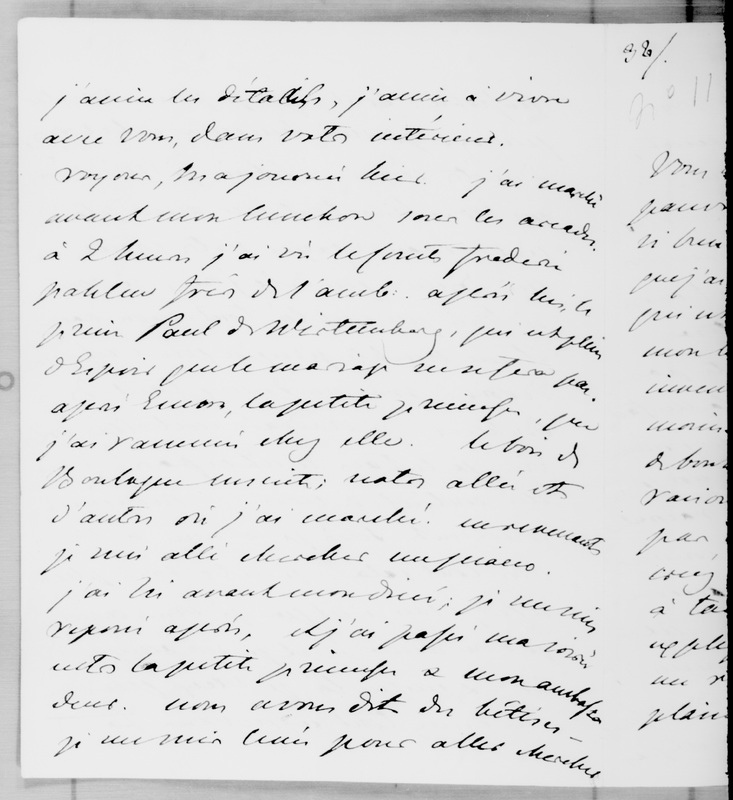 j'aime les détails, j'aime à vivre
avec vous, dans votre intérieur.
voyons, ma journée hier. j'ai marché
avant mon lunchon sous les arcades.
à 2 heures j'ai vu le comte frederic
pahlen frère de l'amb: après lui, le
prince Paul de Wirtemberg, qui est plein
d'Espoir que le mariage ne se fera pas.
après Encore, la petite princesse, que
j'ai ramenée chez elle. le bois de
Boulogne ensuite; notre allée et
d'autres où j'ai marché. en revenant
je suis allé chercher un piano.
j'ai lu avant mon diner; je me suis
reposée après, et j'ai passé ma soirée
entre la petite princesse & mon ambassa
deur. nous avons dit des bêtises
je me suis levée pour aller chercher
38/.
n° 11
Vous
qui
j'ai
qui
mon
moins
de bon
par
à
plain